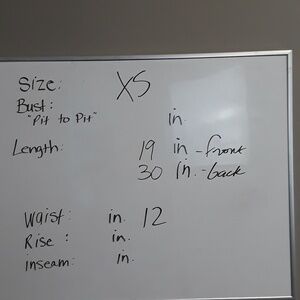 Size: XS
Bust:
"Pit to Pit" in
Length: 19 in - front
30 in. - back
Waist: in. 12
Rise: in.
inseam: in.